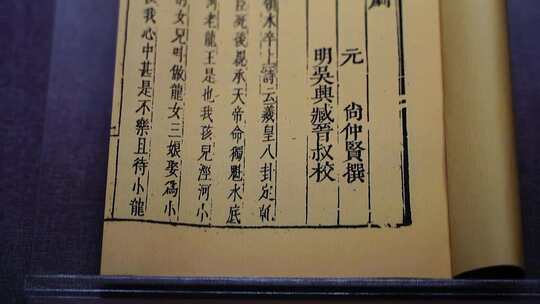 劇
元 尚仲賢撰
明吳興臧晉叔校
領水卒上詩云羲皇八卦定乾
臣死後親承天帝命獨魁水底
河老龍王是也我孩兒涇河小
的女兒叫做龍女三娘娶爲小
我心中甚是不樂且待小龍